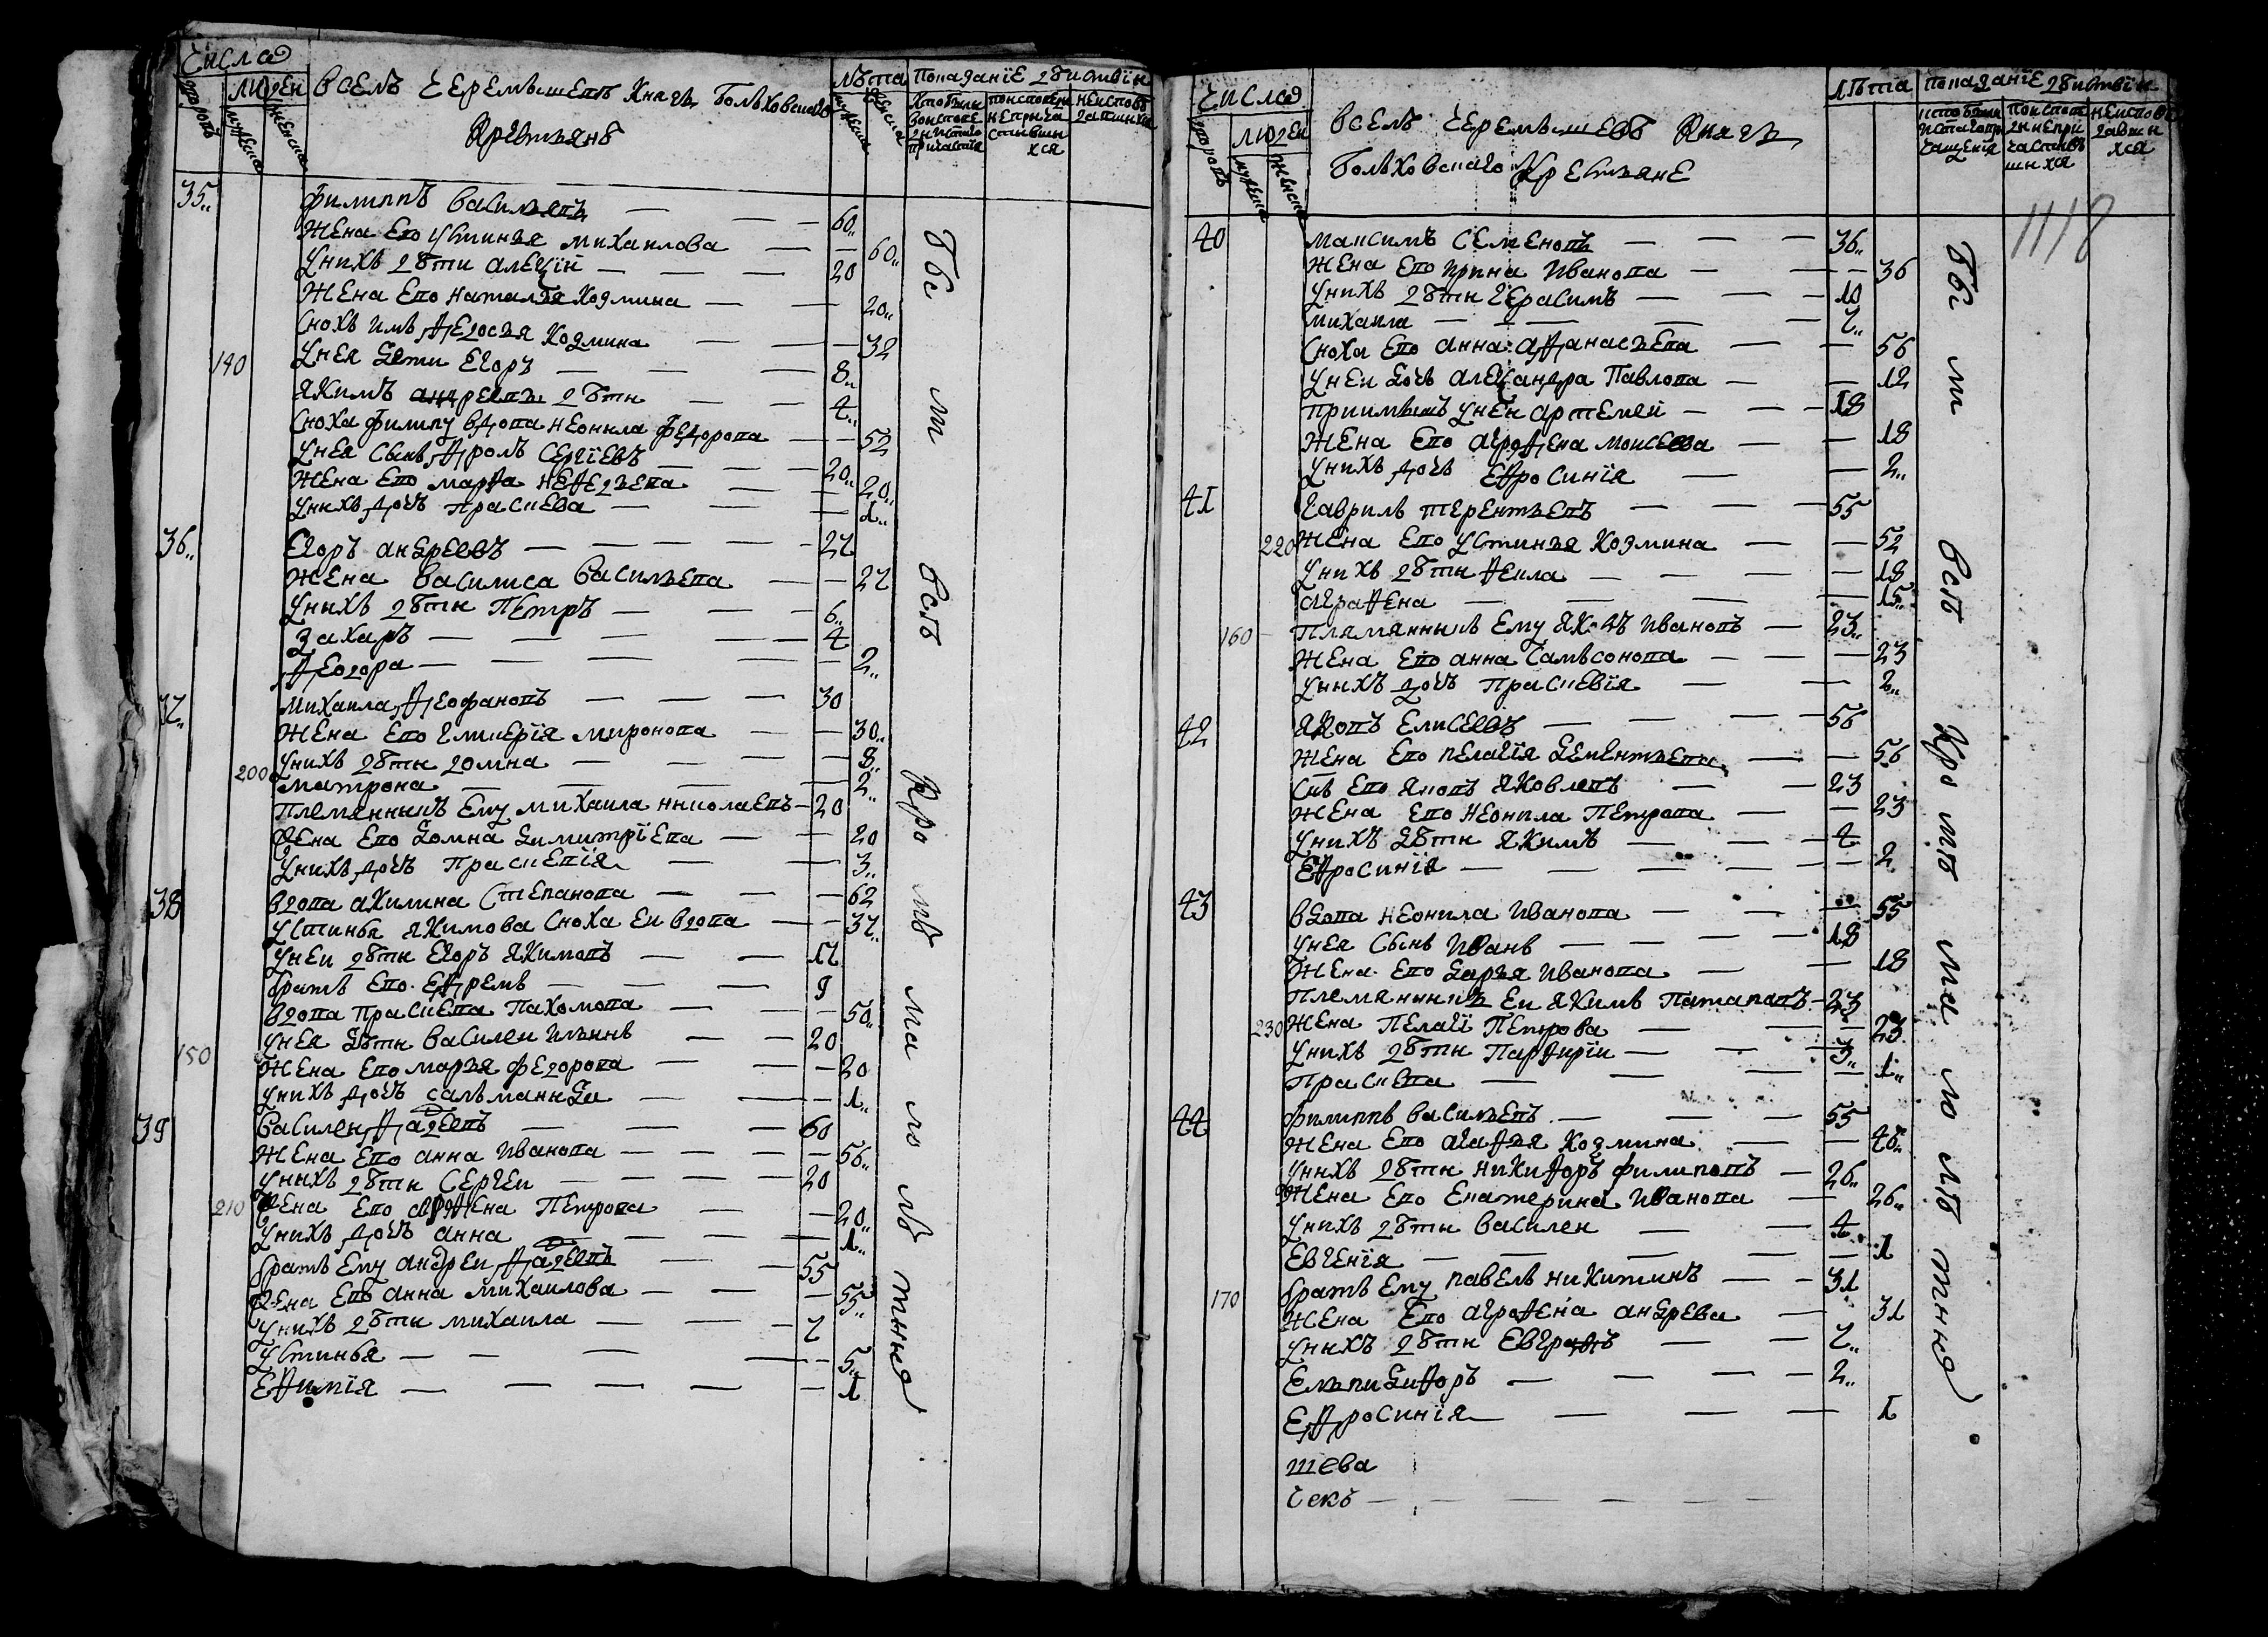 Числа
людей
дворовъ
мужеска
женска
В селѣ Черемышевѣ Княгъ Болховскаго
Крестьянѣ
Лѣта
мужеска
женска
Показанїе дѣиствїи
35 Филиппъ Васильевъ — 60
Жена ево Устинья Михаилова — 60
У нихъ дѣти Алеѯїй — 20
Жена ево Наталья Козмина — 20
Сноха имъ Федосья Козмина — 32
140 У нея дѣти Егоръ — 8
Якимъ Андреевъ дѣти — 4
Сноха Филипу вдова Неонила Федорова — 52
У нея сынъ Фролъ Сергїевъ — 20
Жена ево Марфа Нефедьева — 20
У нихъ дочь Праскева — 1
36 Егоръ Андреевъ — 27
Жена Василиса Васильева — 27
У нихъ дѣти Петръ — 6
Захаръ — 4
Федора — 2
37 Михаила Феофановъ — 30
Жена ево Гликерїя Миронова — 30
У нихъ дѣти Домна — 8
200 Матрона — 2
Племенникъ ему Михаила Николаевъ — 20
Жена ево Домна Димитрїева — 20
У нихъ дочь Праскевїя — 3
38 Вдова Акилина Степанова — 62
Устинья Якимова сноха еи вдова — 37
У неи дѣти Егоръ Якимовъ — 17
Братъ ево Ефремъ — 9
Вдова Праскева Пахомова — 50
У нея дѣти Василеи Ильинъ — 20
150 Жена ево Марья Федорова — 20
У нихъ дочь Саломанида — 1
39 Василеи Фадеевъ — 60
Жена ево Анна Иванова — 56
У нихъ дѣти Сергеи — 20
210 Жена ево Агрфена Петрова — 20
У нихъ дочь Анна — 1
Братъ ему Андреи Фадеевъ — 55
Жена ево Анна Михаилова — 55
У нихъ дѣти Михаила — 7
Устинья — 5
Ефимїя — 1
Бы т всѣ Кро мѣ ма ло лѣ тних
Числа
людей
дворовъ
мужеска
женска
В селѣ Черемышевѣ Княгъ
Болховскаго Крестьяне
Лѣта
Показанїе дѣиствїи
1118
40 Максимъ Семеновъ — 36
Жена ево Ирина Иванова — 36
У нихъ дѣти Герасимъ — 10
Михаила — 7
Сноха ево Анна Афанасьева — 56
У неи дочь Алеѯандра Павлова — 12
Приимышъ у неи Артемей — 18
Жена ево Агрофена Моисеева — 18
У нихъ дочь Ефросинїя — 2
41 Гаврилъ Терентьевъ — 55
220 Жена ево Устинья Козмина — 52
У нихъ дѣти Фекла — 18
Аграфена — 15
160 Племянникъ ему Яковъ Ивановъ — 23
Жена ево Анна Самсонова — 23
У нихъ дочь Праскевїя — 2
42 Яковъ Елисеевъ — 56
Жена ево Пелагїя Деменьтьева — 56
Снъ ево Яковъ Яковлевъ — 23
Жена ево Неонила Петрова — 23
У нихъ дѣти Якимъ — 4
Ефросинїя — 2
43 Вдова Неонила Иванова — 55
У нея сынъ Иванъ — 18
Жена ево Дарья Иванова — 18
Племянникъ еи Якимъ Патаповъ — 23
230 Жена Пелагї Петрова — 23
У нихъ дѣти Парфирїи — 3
Праскева — 1
44 Филиппъ Васильевъ — 55
Жена ево Агафья Козмина — 46
У нихъ дѣти Никифоръ Филиповъ — 26
Жена ево Екатерина Иванова — 26
У нихъ дѣти Василеи — 4
Евгенїя — 1
Братъ ему Павелъ Никитинъ — 31
170 Жена ево Агрофена Андрева — 31
У нихъ дѣти Евграфъ — 7
Ельпидифоръ — 2
Ефросинїя — 1
шева
чекъ —
Бы т всѣ Кро мѣ ма ло лѣ тних